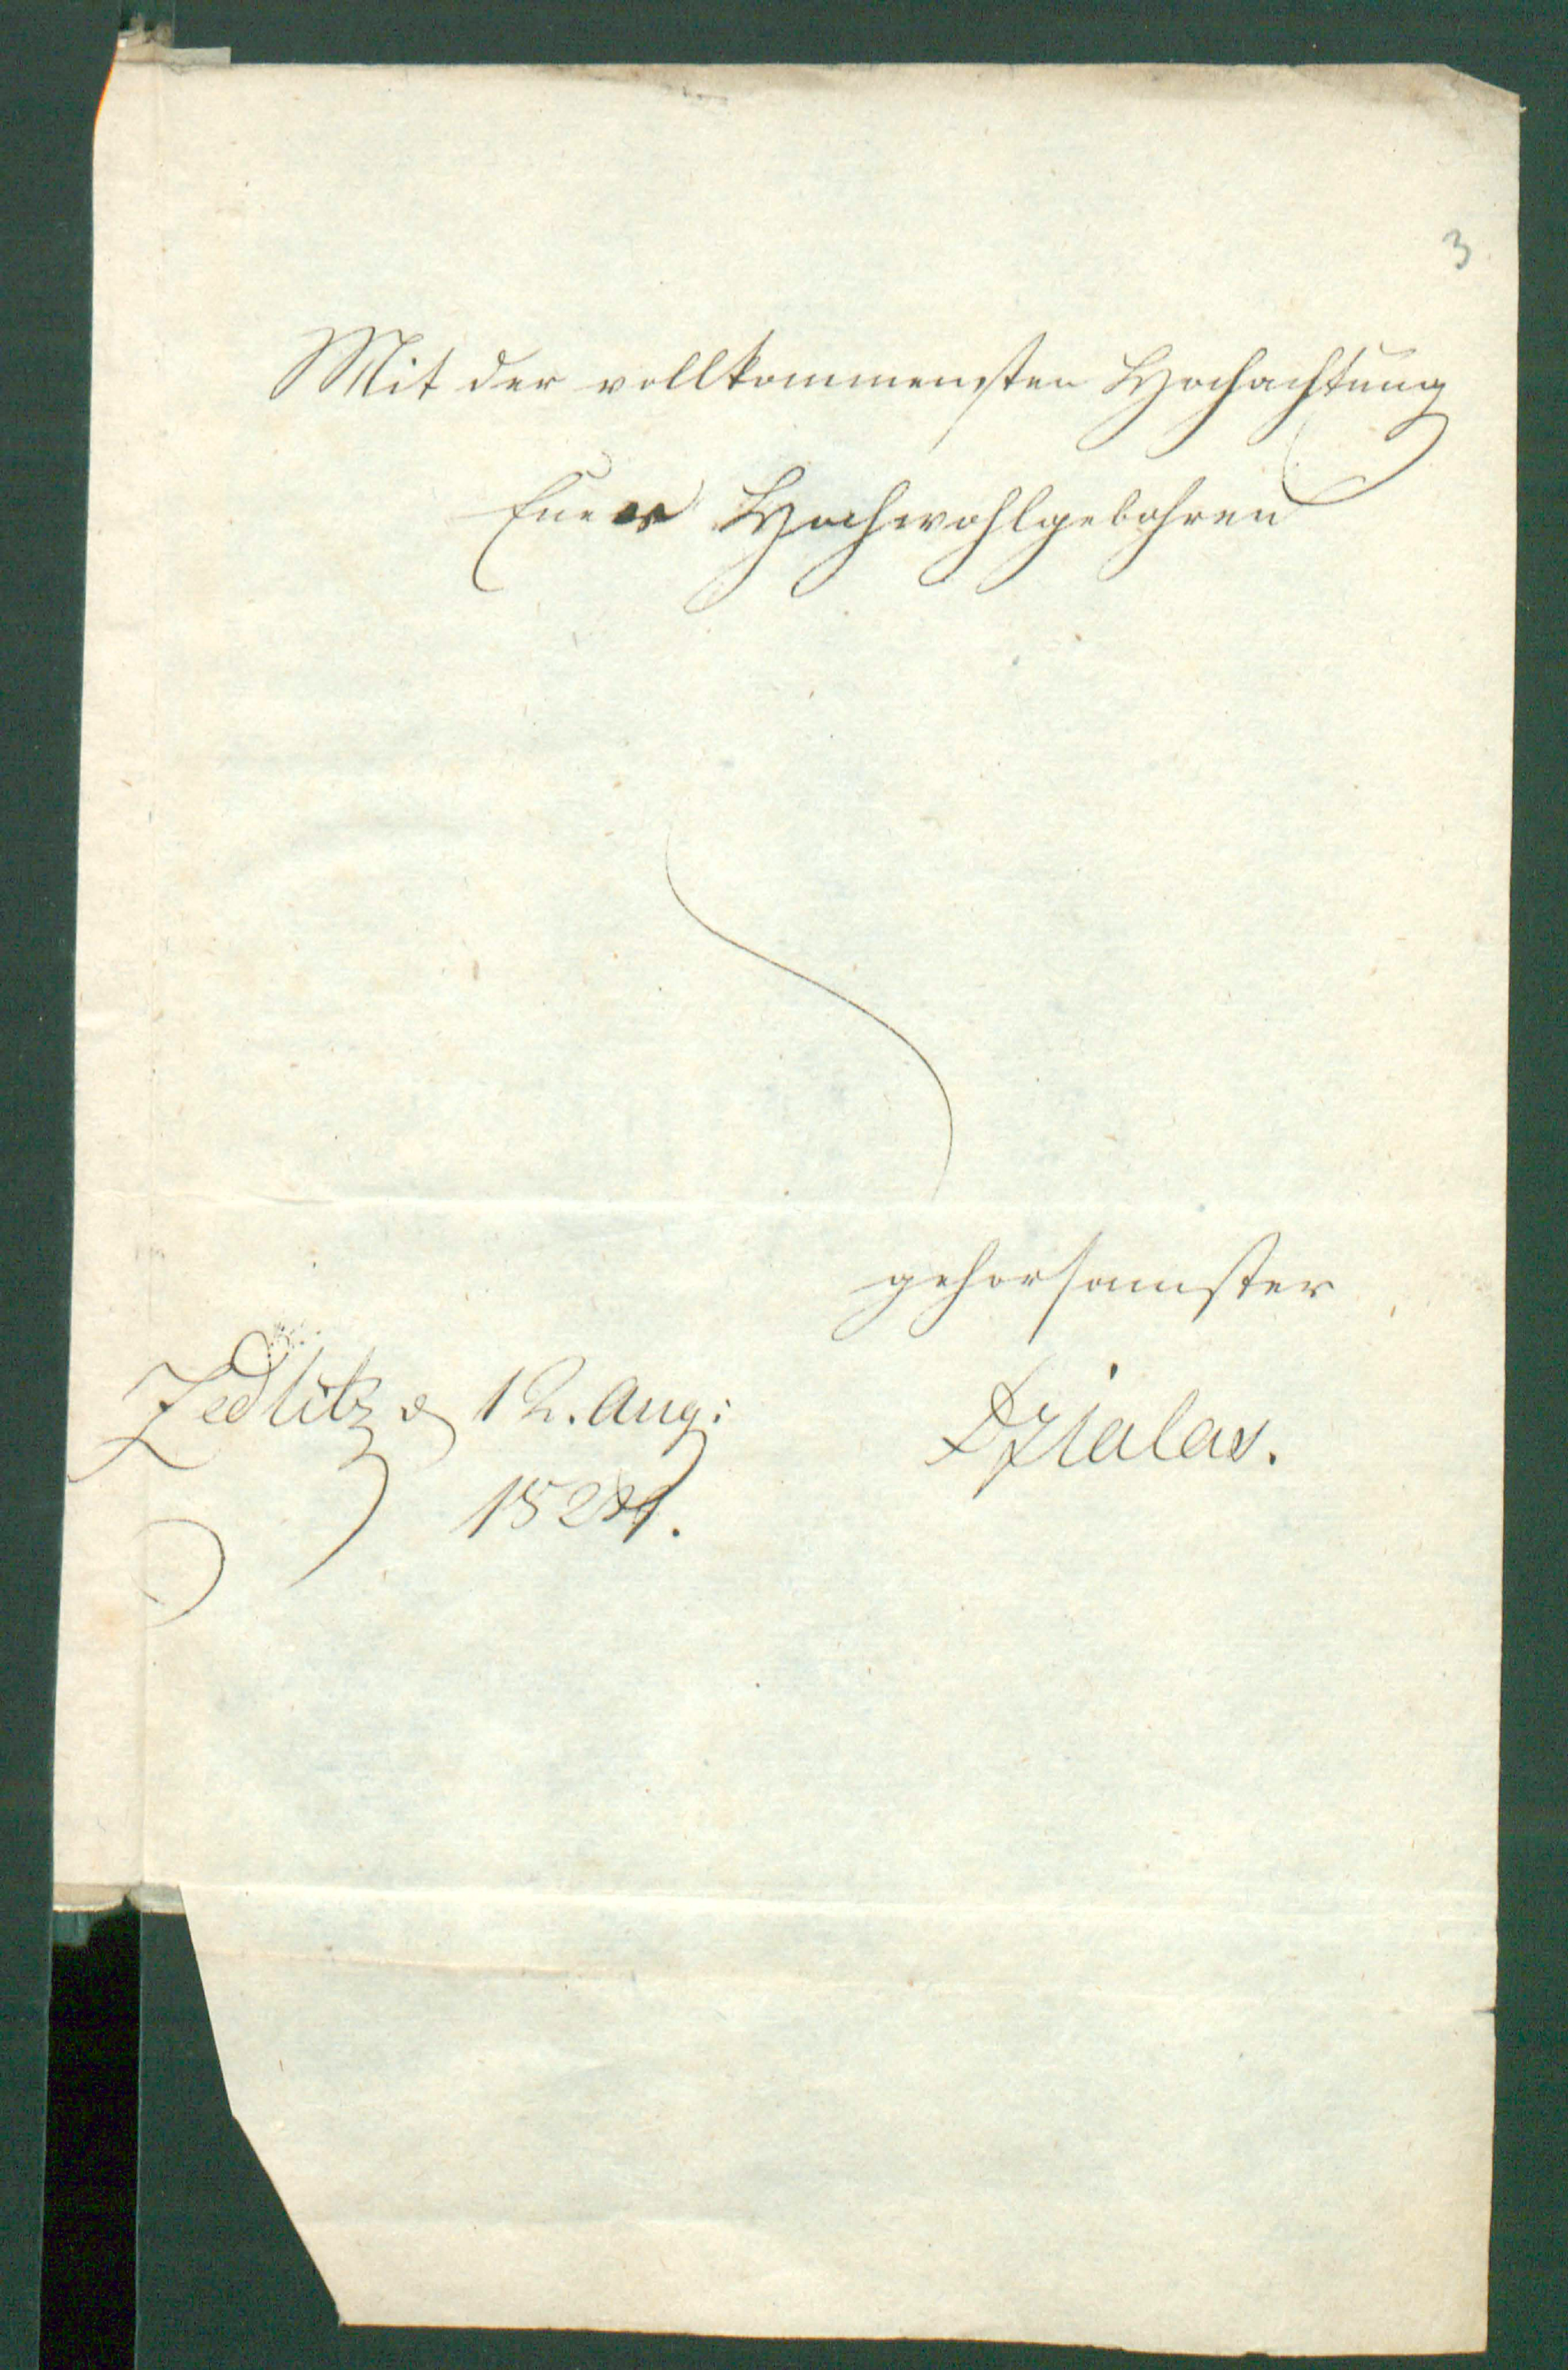 3
Mit der vollkommensten Hochachtung
Euer Hochwohlgebohren
gehorsamster
Zedlitz d 12. Aug:
Dzialas.